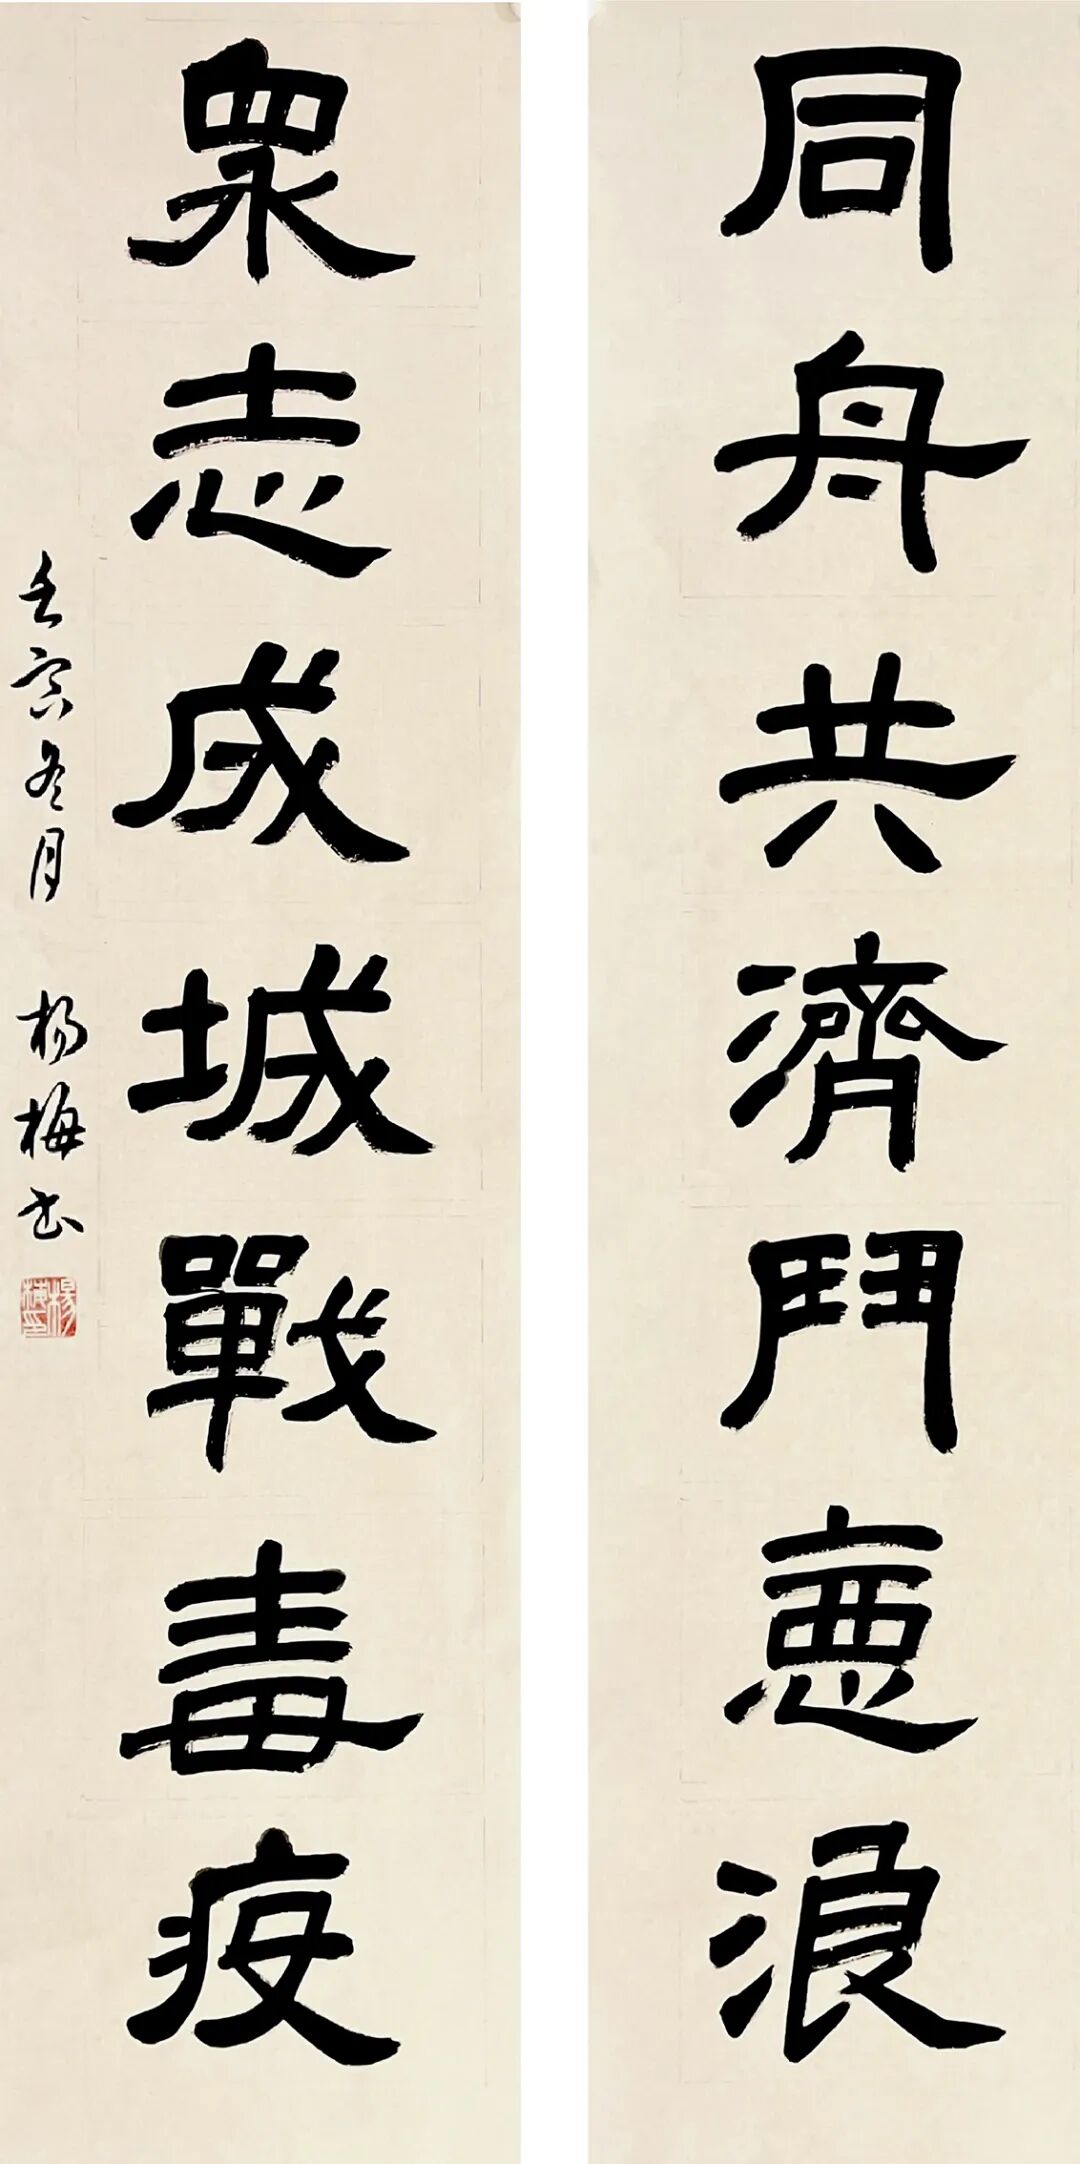 同舟共濟鬥惡浪
眾志成城戰毒疫
壬寅冬月 杨梅书
楊梅印